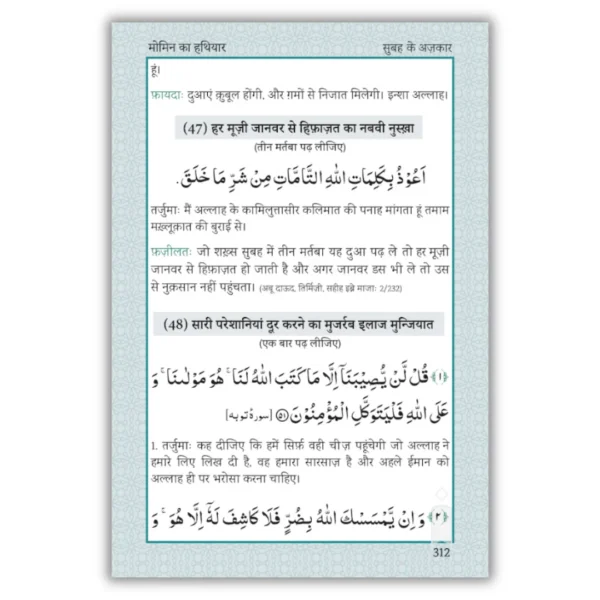 मोमिन का हथियार
सुबह के अज़कार
हूं।
फ़ायदाः दुआएं क़ुबूल होंगी, और ग़मों से निजात मिलेगी। इन्शा अल्लाह।
(47) हर मूज़ी जानवर से हिफ़ाज़त का नबवी नुस्ख़ा
(तीन मर्तबा पढ़ लीजिए)
اَعُوْذُ بِكَلِمَاتِ اللّٰهِ التَّامَّاتِ مِنْ شَرِّ مَا خَلَقَ.
तर्जुमाः मैं अल्लाह के कामिलुत्तासीर कलिमात की पनाह मांगता हूं तमाम
मख़्लूक़ात की बुराई से।
फ़ज़ीलतः जो शख़्स सुबह में तीन मर्तबा यह दुआ पढ़ ले तो हर मूज़ी
जानवर से हिफ़ाज़त हो जाती है और अगर जानवर डस भी ले तो उस
से नुक़सान नहीं पहुंचता। (अबू दाऊद, तिर्मिज़ी, सहीह इब्ने माजाः 2/232)
(48) सारी परेशानियां दूर करने का मुजर्रब इलाज मुन्जियात
(एक बार पढ़ लीजिए)
﴿۱﴾ قُلْ لَّنْ يُّصِيْبَنَآ اِلَّا مَا كَتَبَ اللّٰهُ لَنَا ۚ هُوَ مَوْلٰىنَا ۚ وَ
عَلَى اللّٰهِ فَلْيَتَوَكَّلِ الْمُؤْمِنُوْنَ ﴿۵۱﴾ [سورۂ توبہ]
1. तर्जुमाः कह दीजिए कि हमें सिर्फ़ वही चीज़ पहुंचेगी जो अल्लाह ने
हमारे लिए लिख दी है, वह हमारा सारसाज़ है और अहले ईमान को
अल्लाह ही पर भरोसा करना चाहिए।
﴿۲﴾ وَ اِنْ يَّمْسَسْكَ اللّٰهُ بِضُرٍّ فَلَا كَاشِفَ لَهٗٓ اِلَّا هُوَ ۚ وَ
312